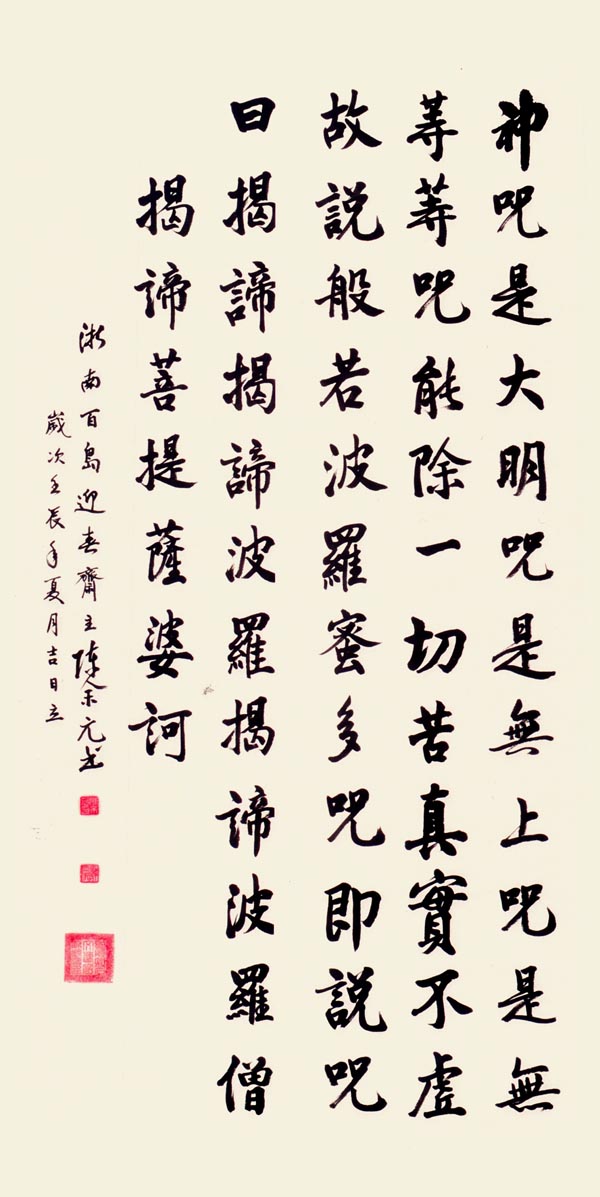 神咒是大明咒是無上咒是無
等等咒能除一切苦真實不虛
故説般若波羅蜜多咒即説咒
曰揭諦揭諦波羅揭諦波羅僧
揭諦菩提薩婆訶
浙南百島迎春齋主陈元书
歲次壬辰年夏月吉日立